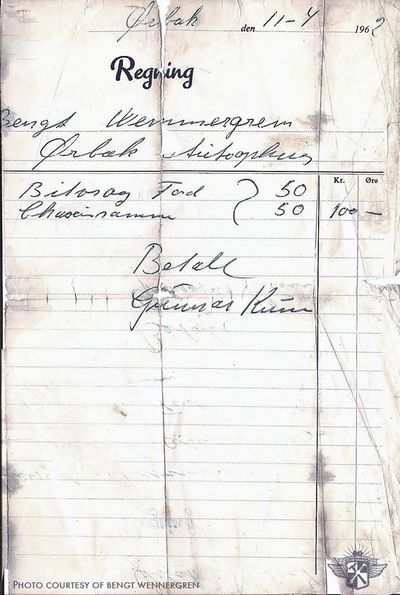 Ørbæk den 11-4 1962
Regning
Bengt Wennergren
Ørbæk Autoophug
Kr. Øre
Bilvrag Ford 50
Chassisramme 50 100 —
Betalt
Gunnar
PHOTO COURTESY OF BENGT WENNERGREN